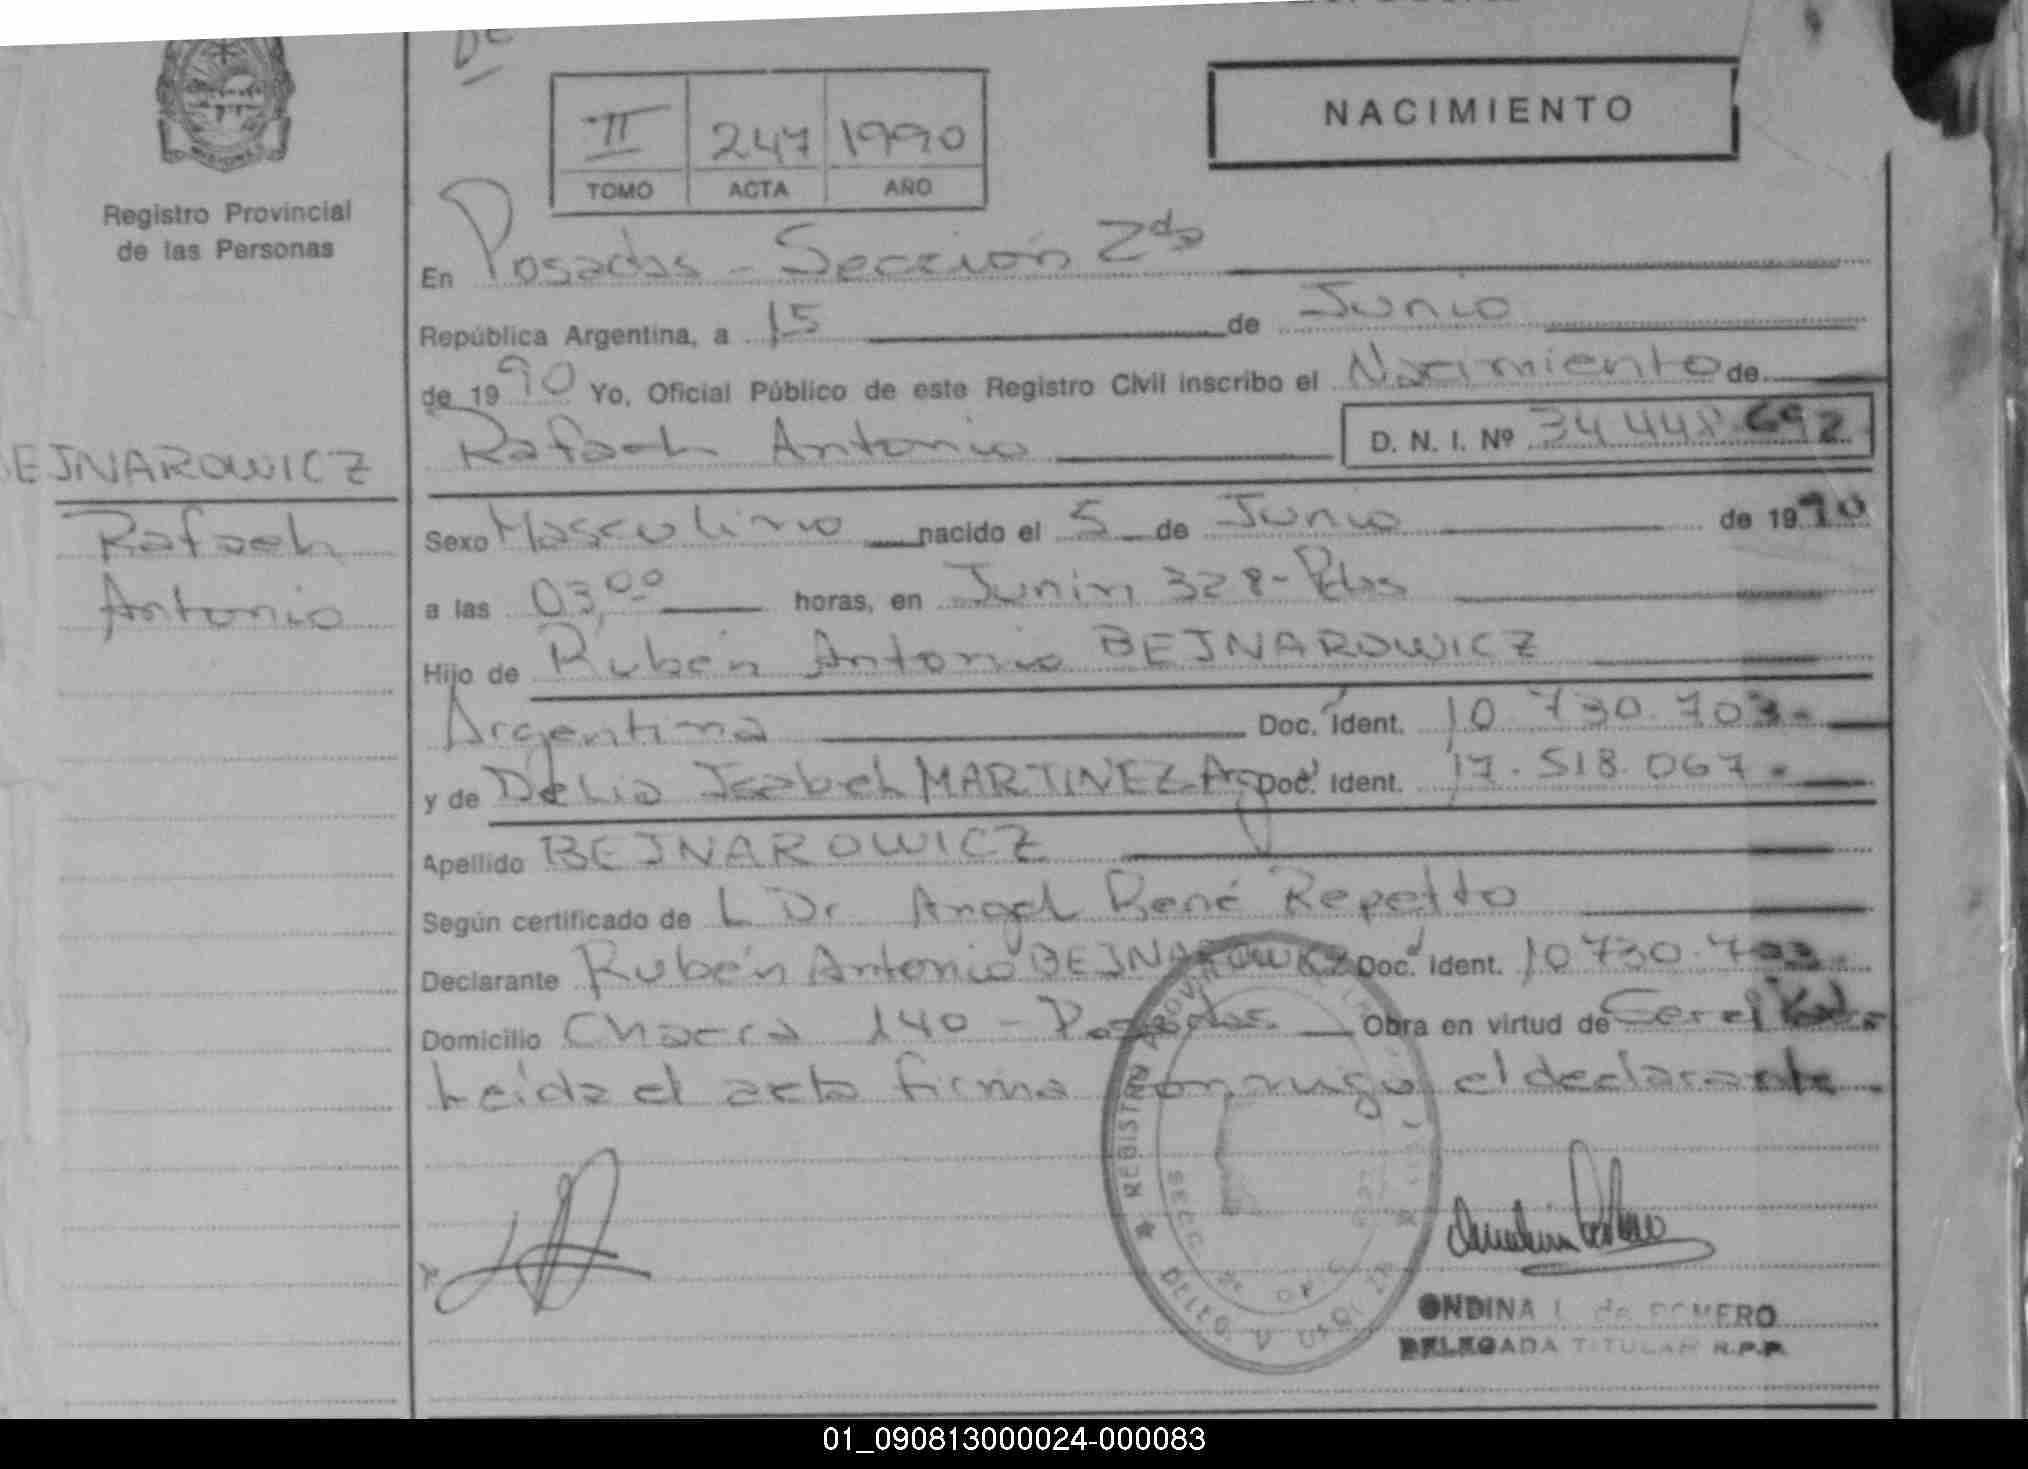 NACIMIENTO
II 247 1990
TOMO ACTA AÑO
Registro Provincial
de las Personas
BEJNAROWICZ
Rafael
Antonio
En Posadas - Sección 2da
República Argentina, a 15 de Junio
de 1990 Yo, Oficial Público de este Registro Civil inscribo el Nacimiento de
Rafael Antonio D. N. I. Nº 34 448 692
Sexo Masculino nacido el 5 de Junio de 1990
a las 03,00 horas, en Junin 328 - Pdas
Hijo de Rubén Antonio BEJNAROWICZ
Argentina Doc. Ident. 10 730.703.-
y de Delia Isabel MARTINEZ Arg Doc. Ident. 17.518.067.-
Apellido BEJNAROWICZ
Según certificado de L Dr Angel René Repetto
Declarante Rubén Antonio BEJNAROWICZ Doc. Ident. 10 730.703.
Domicilio Chacra 140 - Posadas Obra en virtud de
Leida el acta firma conmigo el declarante.
REGISTRO PROVINCIAL
ONDINA L. de ROMERO
DELEGADA TITULAR R.P.P.
01_090813000024-000083